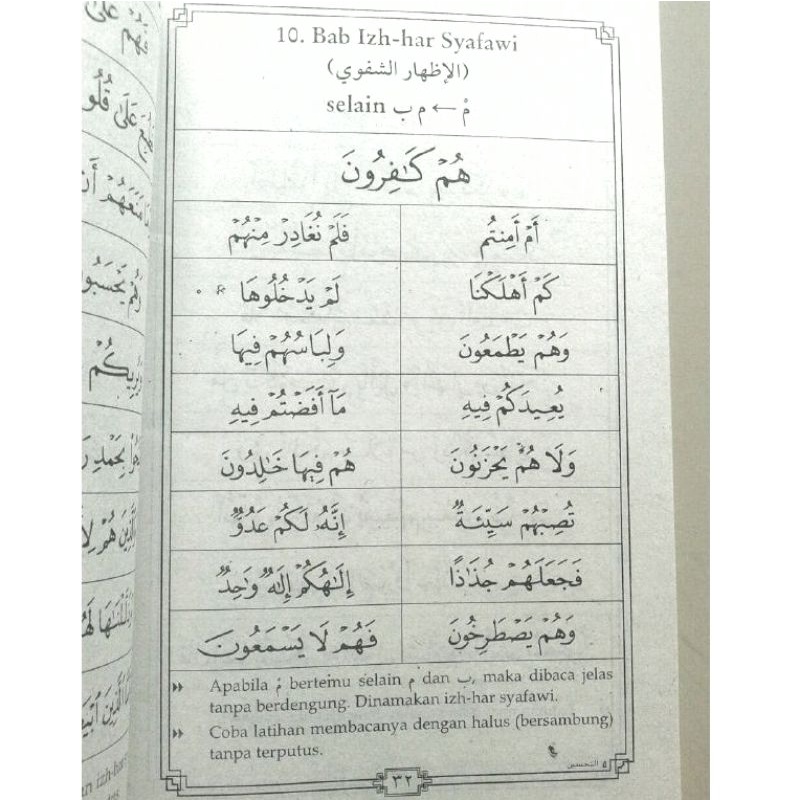 10. Bab Izh-har Syafawi
(الإظهار الشفوي)
مْ ← م ب selain
هُمْ كَـٰفِرُونَ
أَمْ أَمِنتُم
فَلَمْ نُغَادِرْ مِنْهُمْ
كَمْ أَهْلَكْنَا
لَمْ يَدْخُلُوهَا
وَهُمْ يَطْمَعُونَ
وَلِبَاسُهُمْ فِيهَا
يُعِيدَكُمْ فِيهِ
مَآ أَفَضْتُمْ فِيهِ
وَلَا هُمْ يَحْزَنُونَ
هُمْ فِيهَا خَـٰلِدُونَ
تُصِبْهُمْ سَيِّئَةٌ
إِنَّهُۥ لَكُمْ عَدُوٌّ
فَجَعَلَهُمْ جُذَٰذًا
إِلَـٰهُكُمْ إِلَـٰهٌ وَٰحِدٌ
وَهُمْ يَصْطَرِخُونَ
فَهُمْ لَا يَسْمَعُونَ
Apabila مْ bertemu selain م dan ب, maka dibaca jelas
tanpa berdengung. Dinamakan izh-har syafawi.
Coba latihan membacanya dengan halus (bersambung)
tanpa terputus.
٣٢